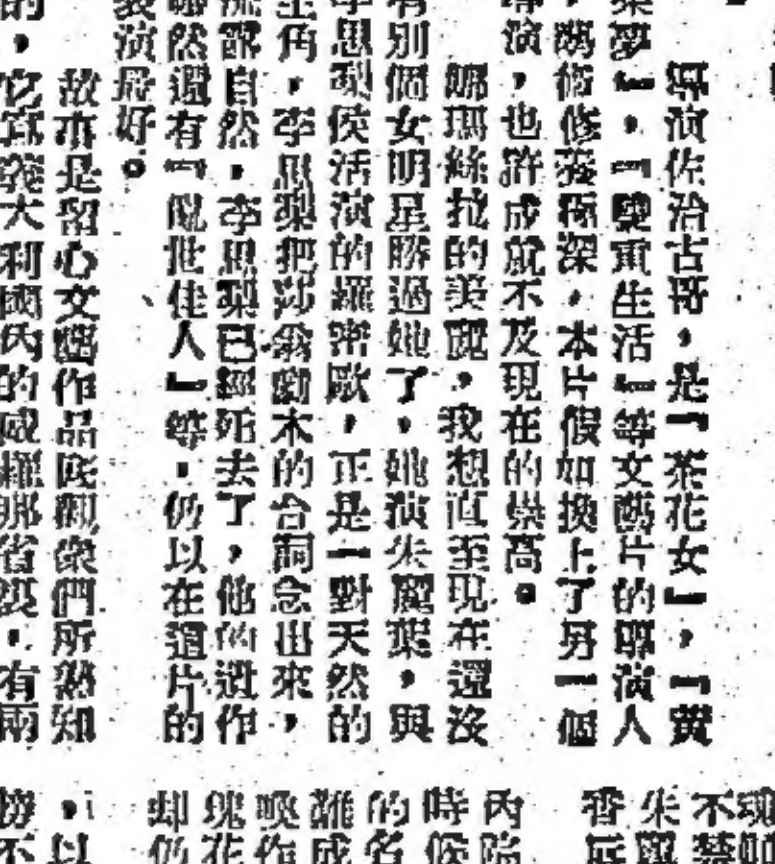 導演佐治古哥，是「茶花女」，「黃
粱夢」，「雙重生活」等文藝片的導演人
，藝術修養極深，本片假如換上了另一個
導演，也許成就不及現在的崇高。
娜瑪絲拉的美麗，我想直至現在還沒
有別個女明星勝過她了，她演朱麗葉，與
李思梨侯活演的羅密歐，正是一對天然的
主角，李思梨把莎翁劇本的台詞念出來，
流露自然，李思梨已經死去了，他的遺作
雖然還有「亂世佳人」等，仍以在這片的
表演最好。
故事是留心文藝作品底觀衆們所熟知
的，它寫義大利國內的威羅那省裏，有兩
不禁
朱麗
香底
內臨
時候
的名
誰成
喚作
瑰花
却仍
，以